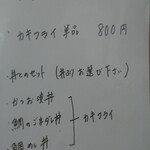 ・カキフライ 単品 800円
・丼とのセット (丼よりお選び下さい)
・かつお味丼
・鯛のごまダレ丼
・鯛めし丼
カキフライ